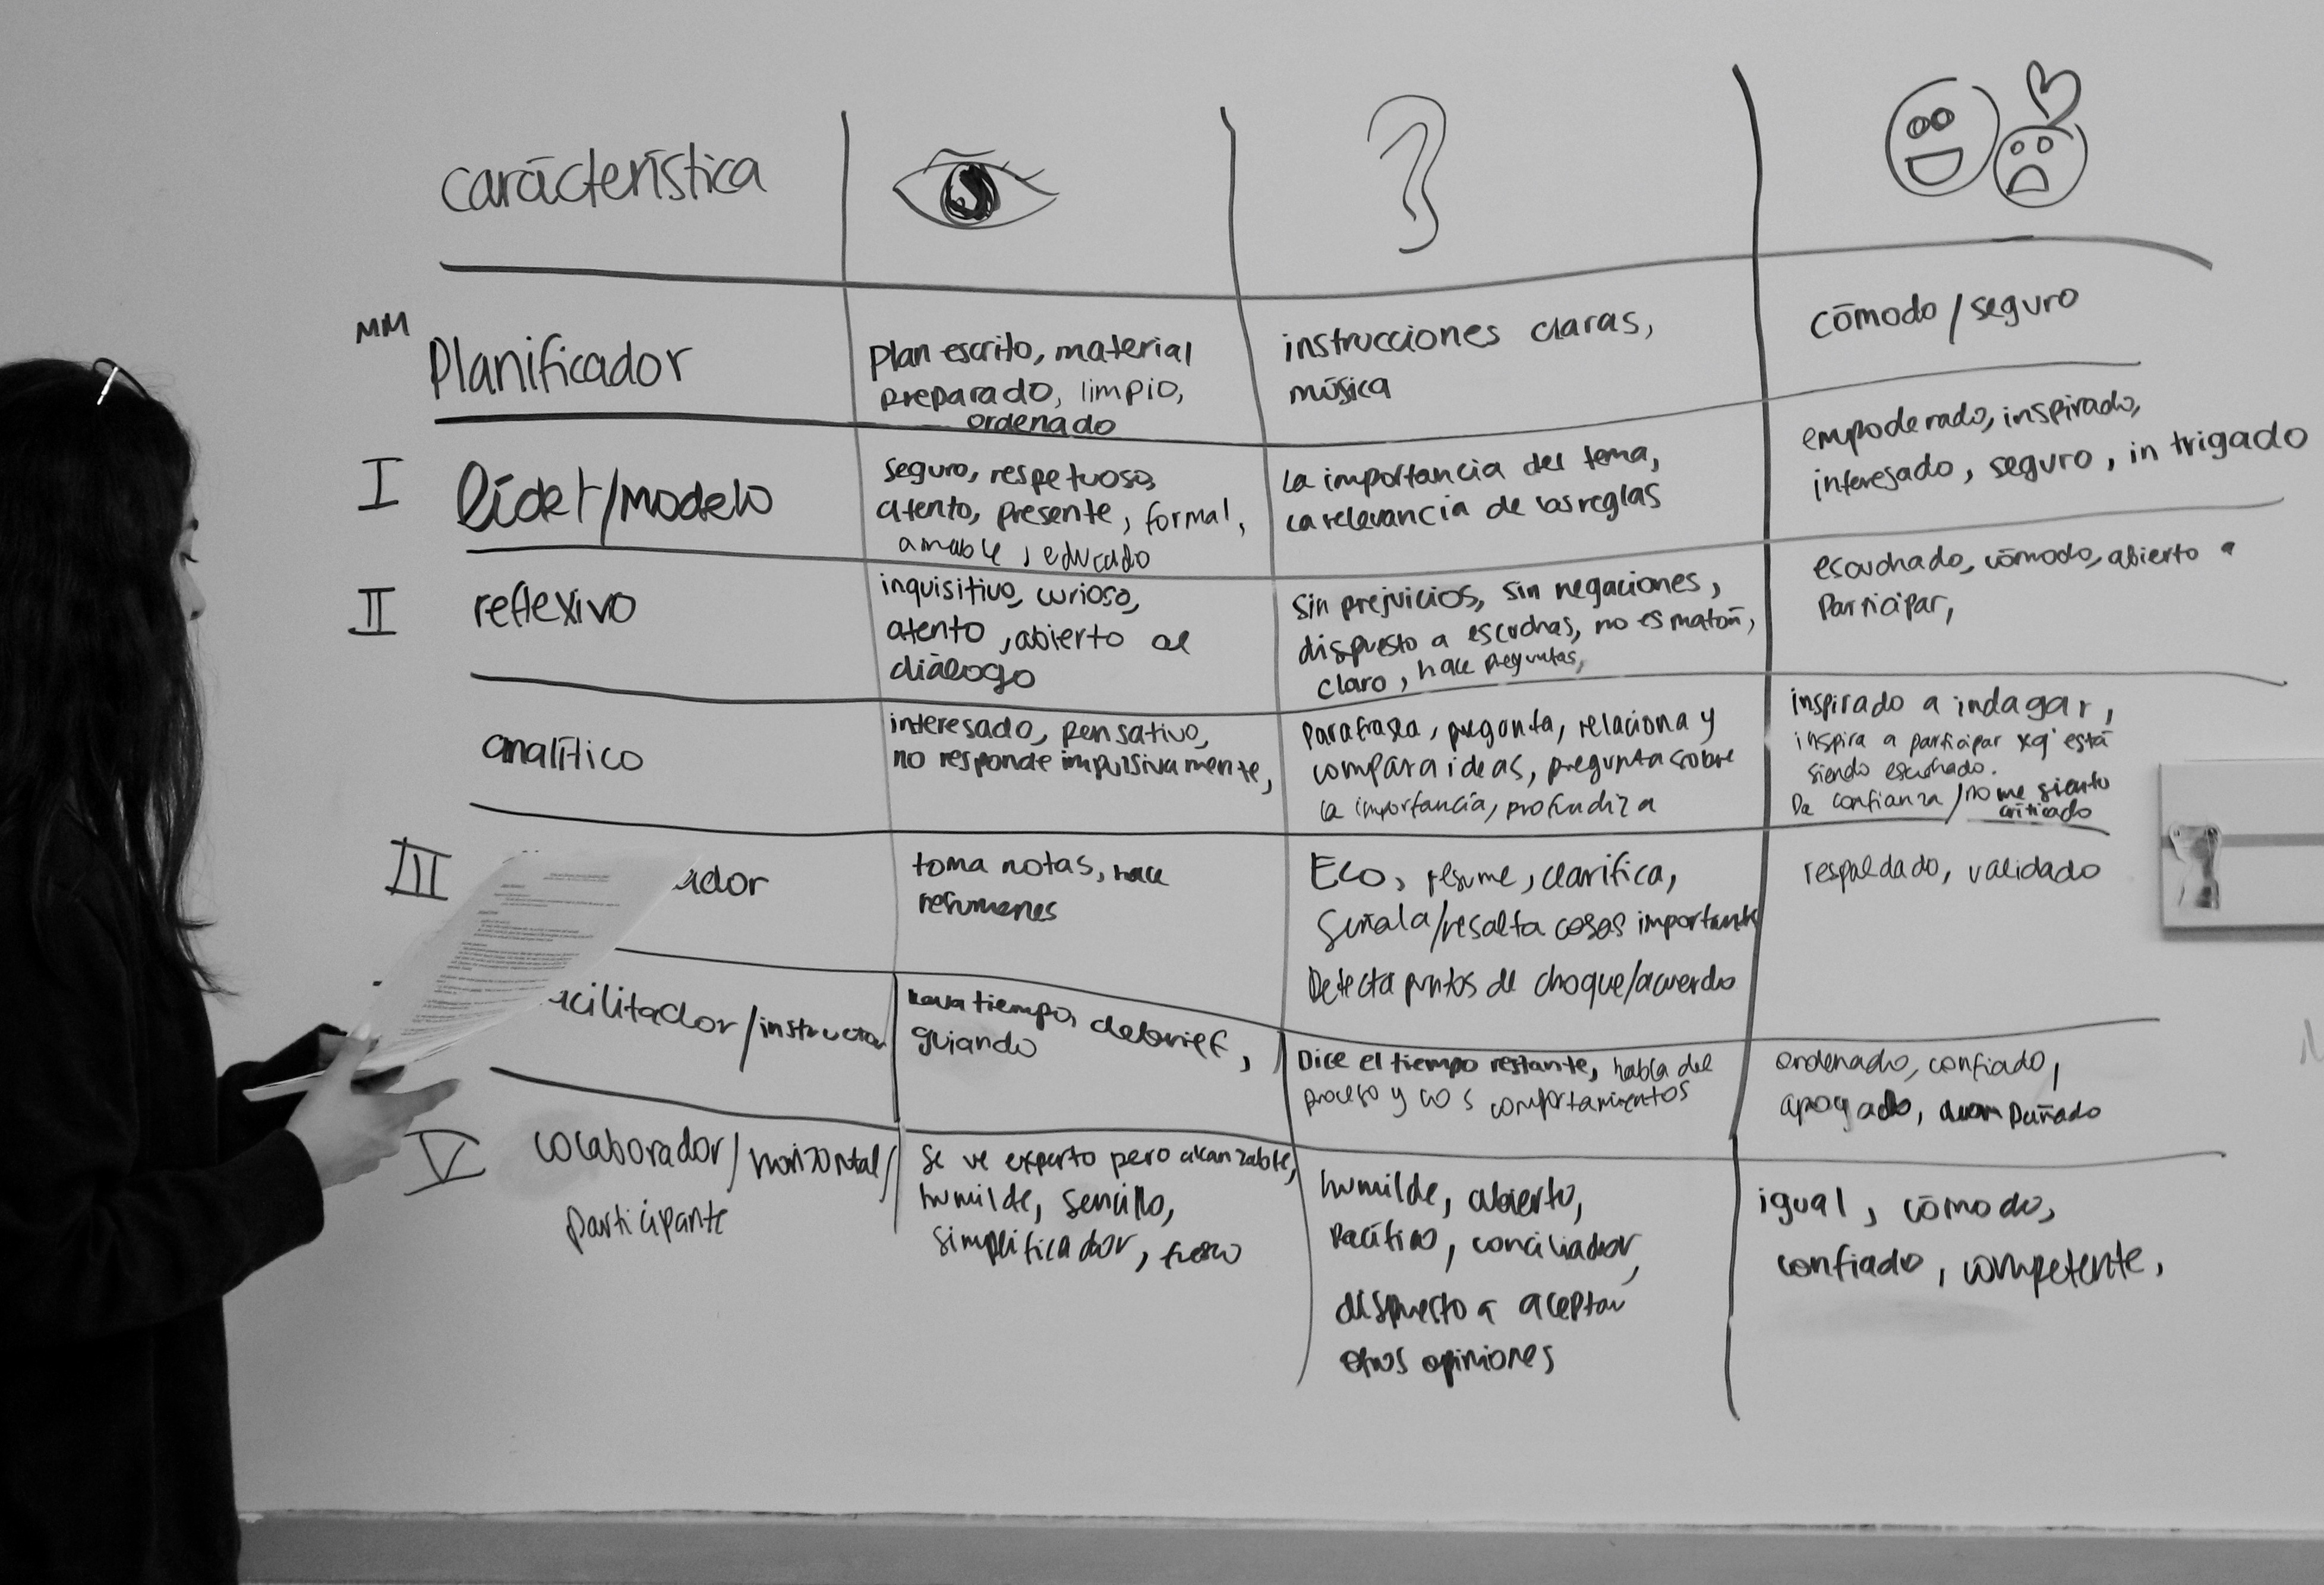 carácterística
MM
Planificador
plan escrito, material
preparado, limpio,
ordenado
instrucciones claras,
música
cómodo/seguro
I
líder/modelo
seguro, respetuoso,
atento, presente, formal,
amable, educado
la importancia del tema,
la relevancia de las reglas
empoderado, inspirado,
interesado, seguro, intrigado
II
reflexivo
inquisitivo, curioso,
atento, abierto al
diálogo
sin prejuicios, sin negaciones,
dispuesto a escuchas, no es matón,
claro, hace preguntas,
escuchado, cómodo, abierto a
Participar,
analítico
interesado, pensativo,
no responde impulsivamente,
Parafrasea, pregunta, relaciona y
compara ideas, pregunta sobre
la importancia, profundiza
inspirado a indagar,
inspira a participar xq' está
siendo escuchado.
Da confianza/no me siento
criticado
III
ador
toma notas, hace
resumenes
Eco, resume, clarifica,
Señala/resalta cosas importante
Detecta puntos de choque/acuerdo
respaldado, validado
cilitador/instructor
tiempo, debrief,
guiando
Dice el tiempo restante, habla del
proceso y los comportamientos
ordenado, confiado,
apoyado, acompañado
V
colaborador/horizontal/
participante
Se ve experto pero alcanzable,
humilde, sencillo,
simplificador, fresco
humilde, abierto,
Pacífico, conciliador,
dispuesto a aceptar
otros opiniones
igual, cómodo,
confiado, competente,